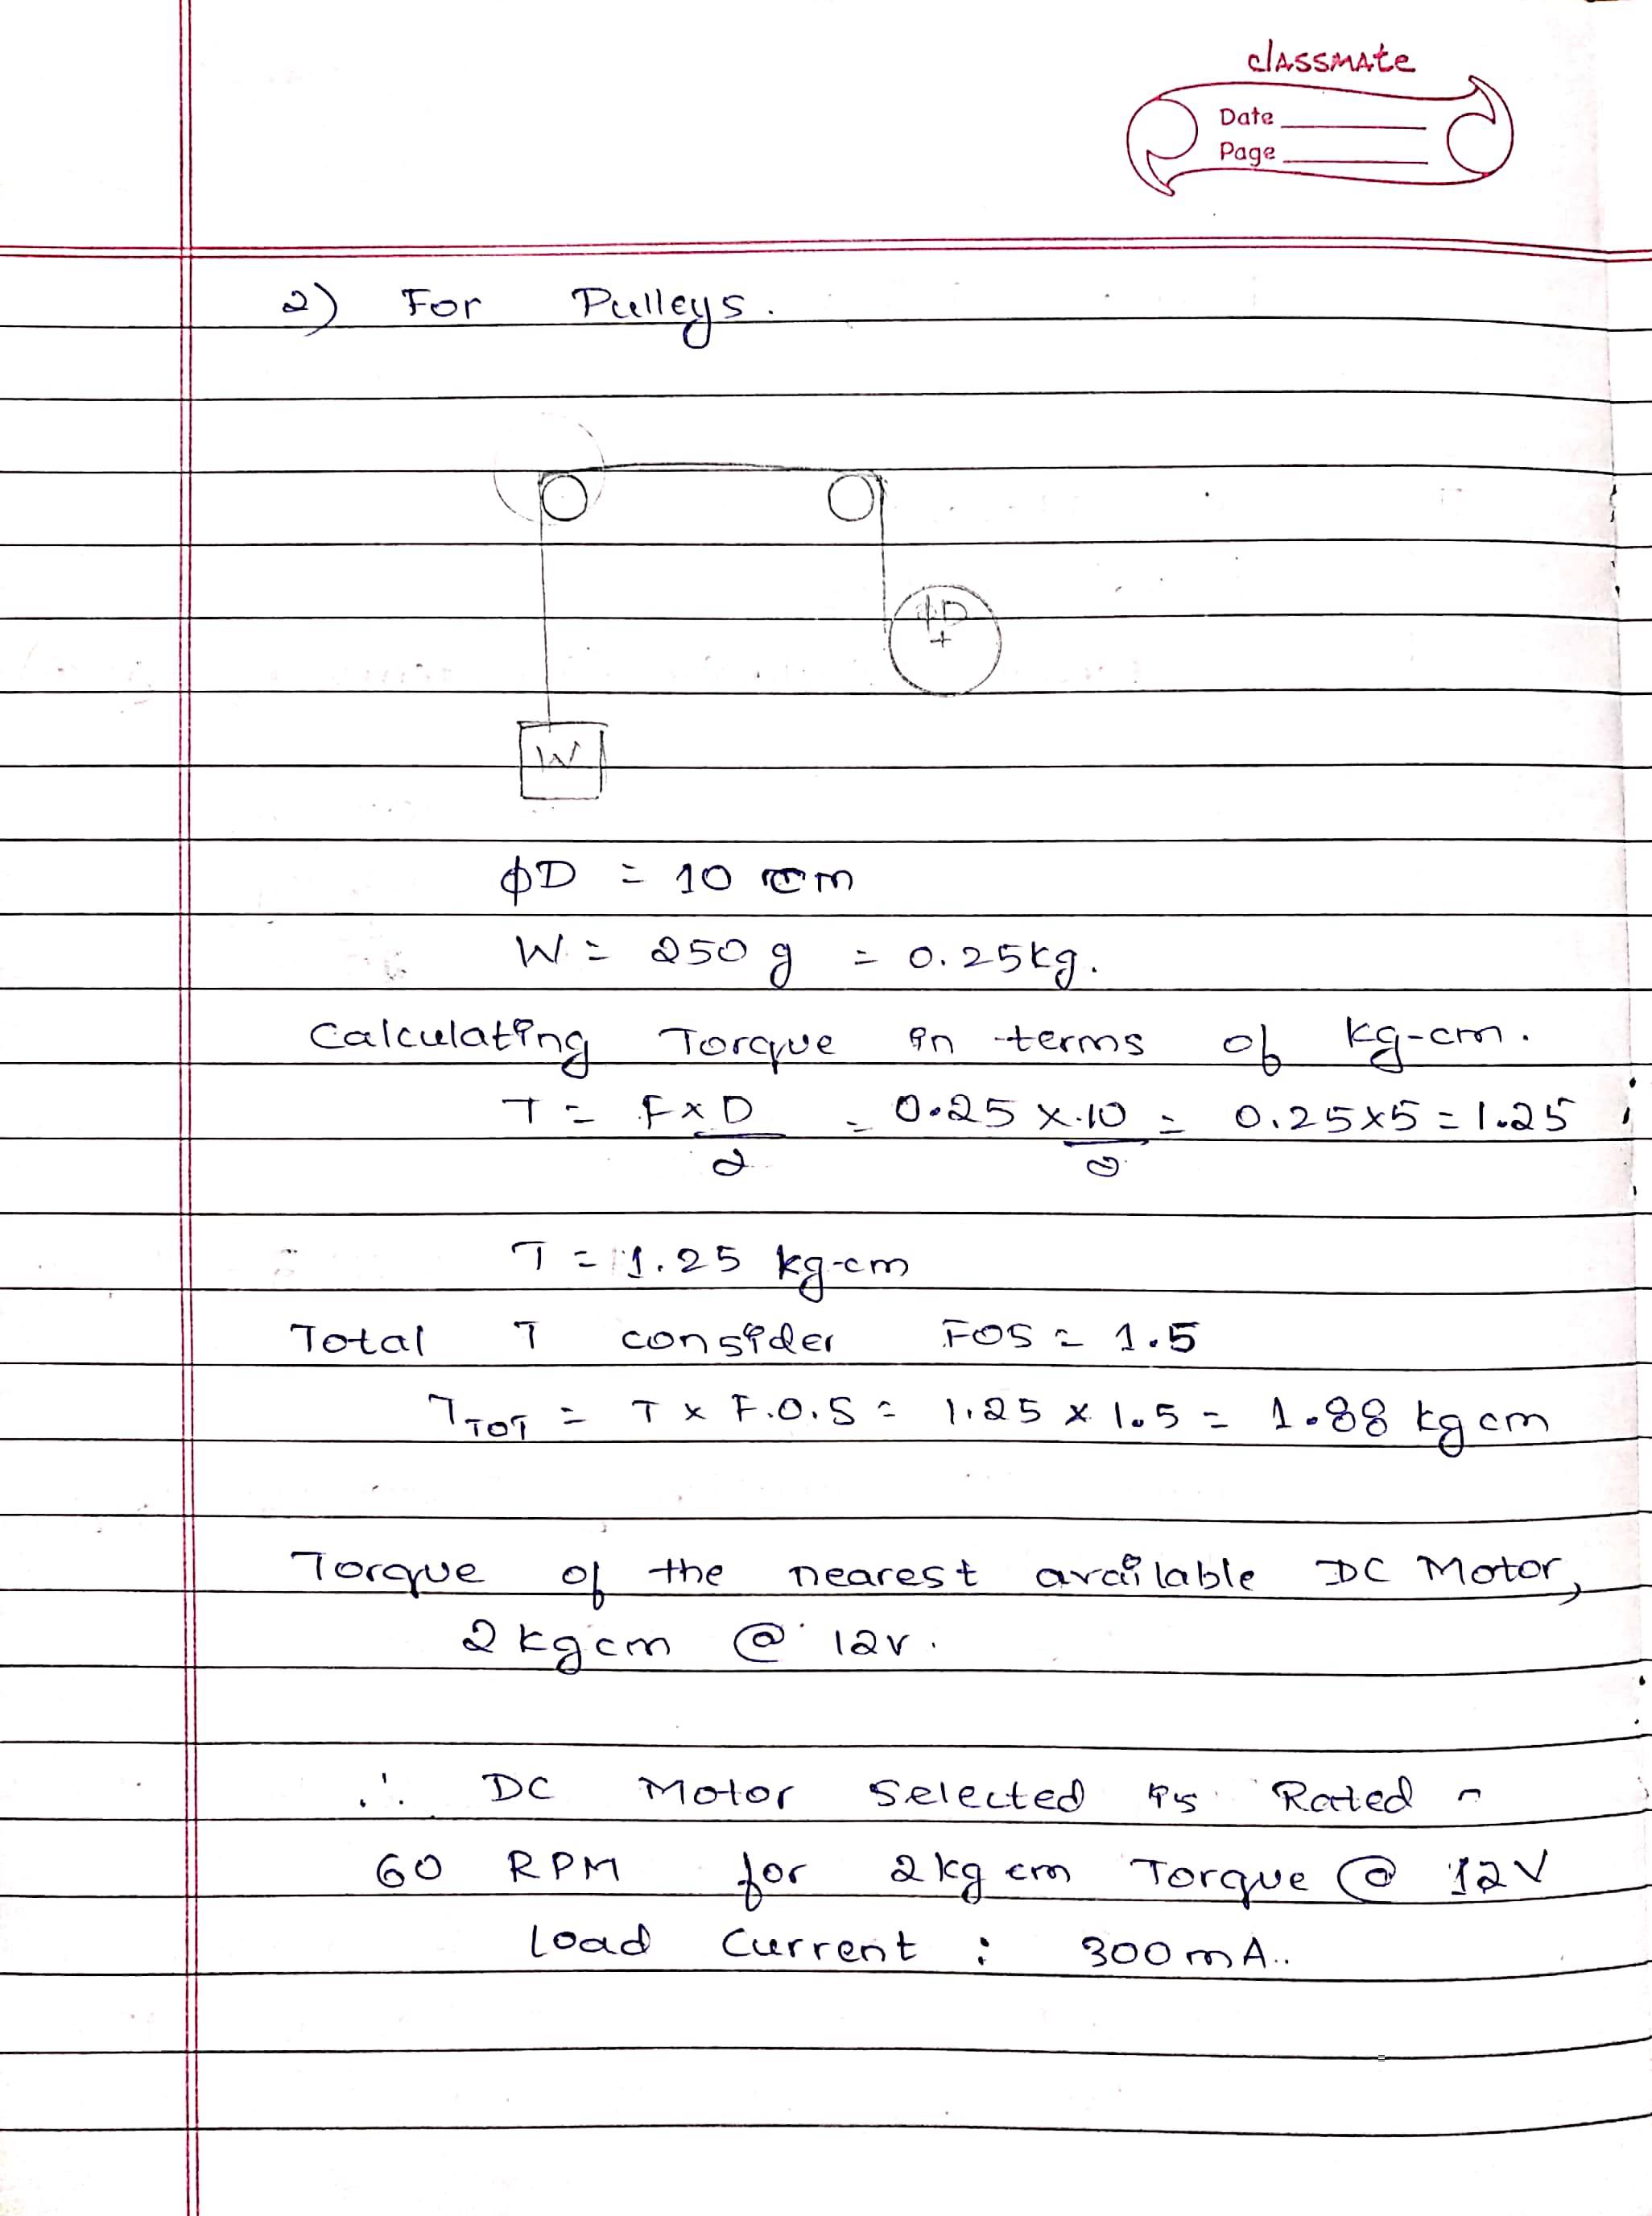 classmate
Date
Page
2) For Pulleys.
ϕD
+
W
ϕD = 10 cm
W = 250 g = 0.25kg.
Calculating Torque in terms of kg-cm.
T = F x D/2 = 0.25 x 10/2 = 0.25x5 = 1.25
T = 1.25 kg-cm
Total T consider FOS = 1.5
T_TOT = T x F.O.S = 1.25 x 1.5 = 1.88 kg cm
Torque of the nearest available DC Motor,
2 kgcm @ 12v.
∴ DC Motor selected is Rated
60 RPM for 2kg cm Torque @ 12V
Load Current : 300mA..